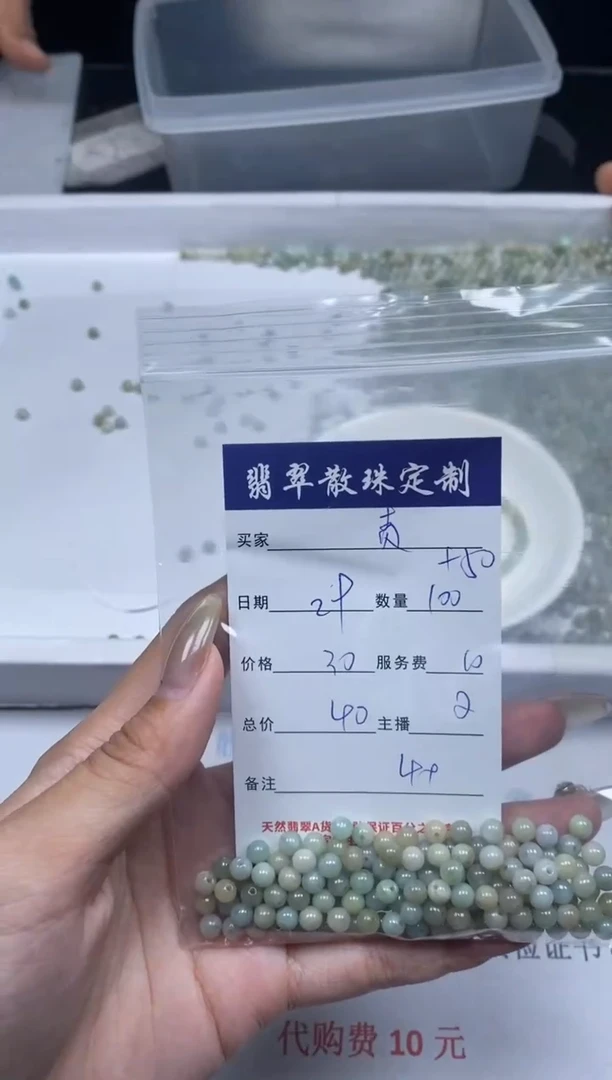 翡翠散珠定制
买家 青
+50
日期 24 数量 100
价格 30 服务费 10
总价 40 主播 2
备注 4+
天然翡翠A货
证百分之
验证书
代购费 10 元